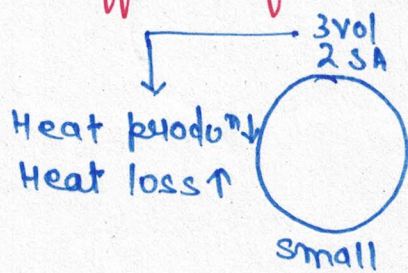 3 vol
2 SA
Heat prodoⁿ↓
Heat loss↑
small